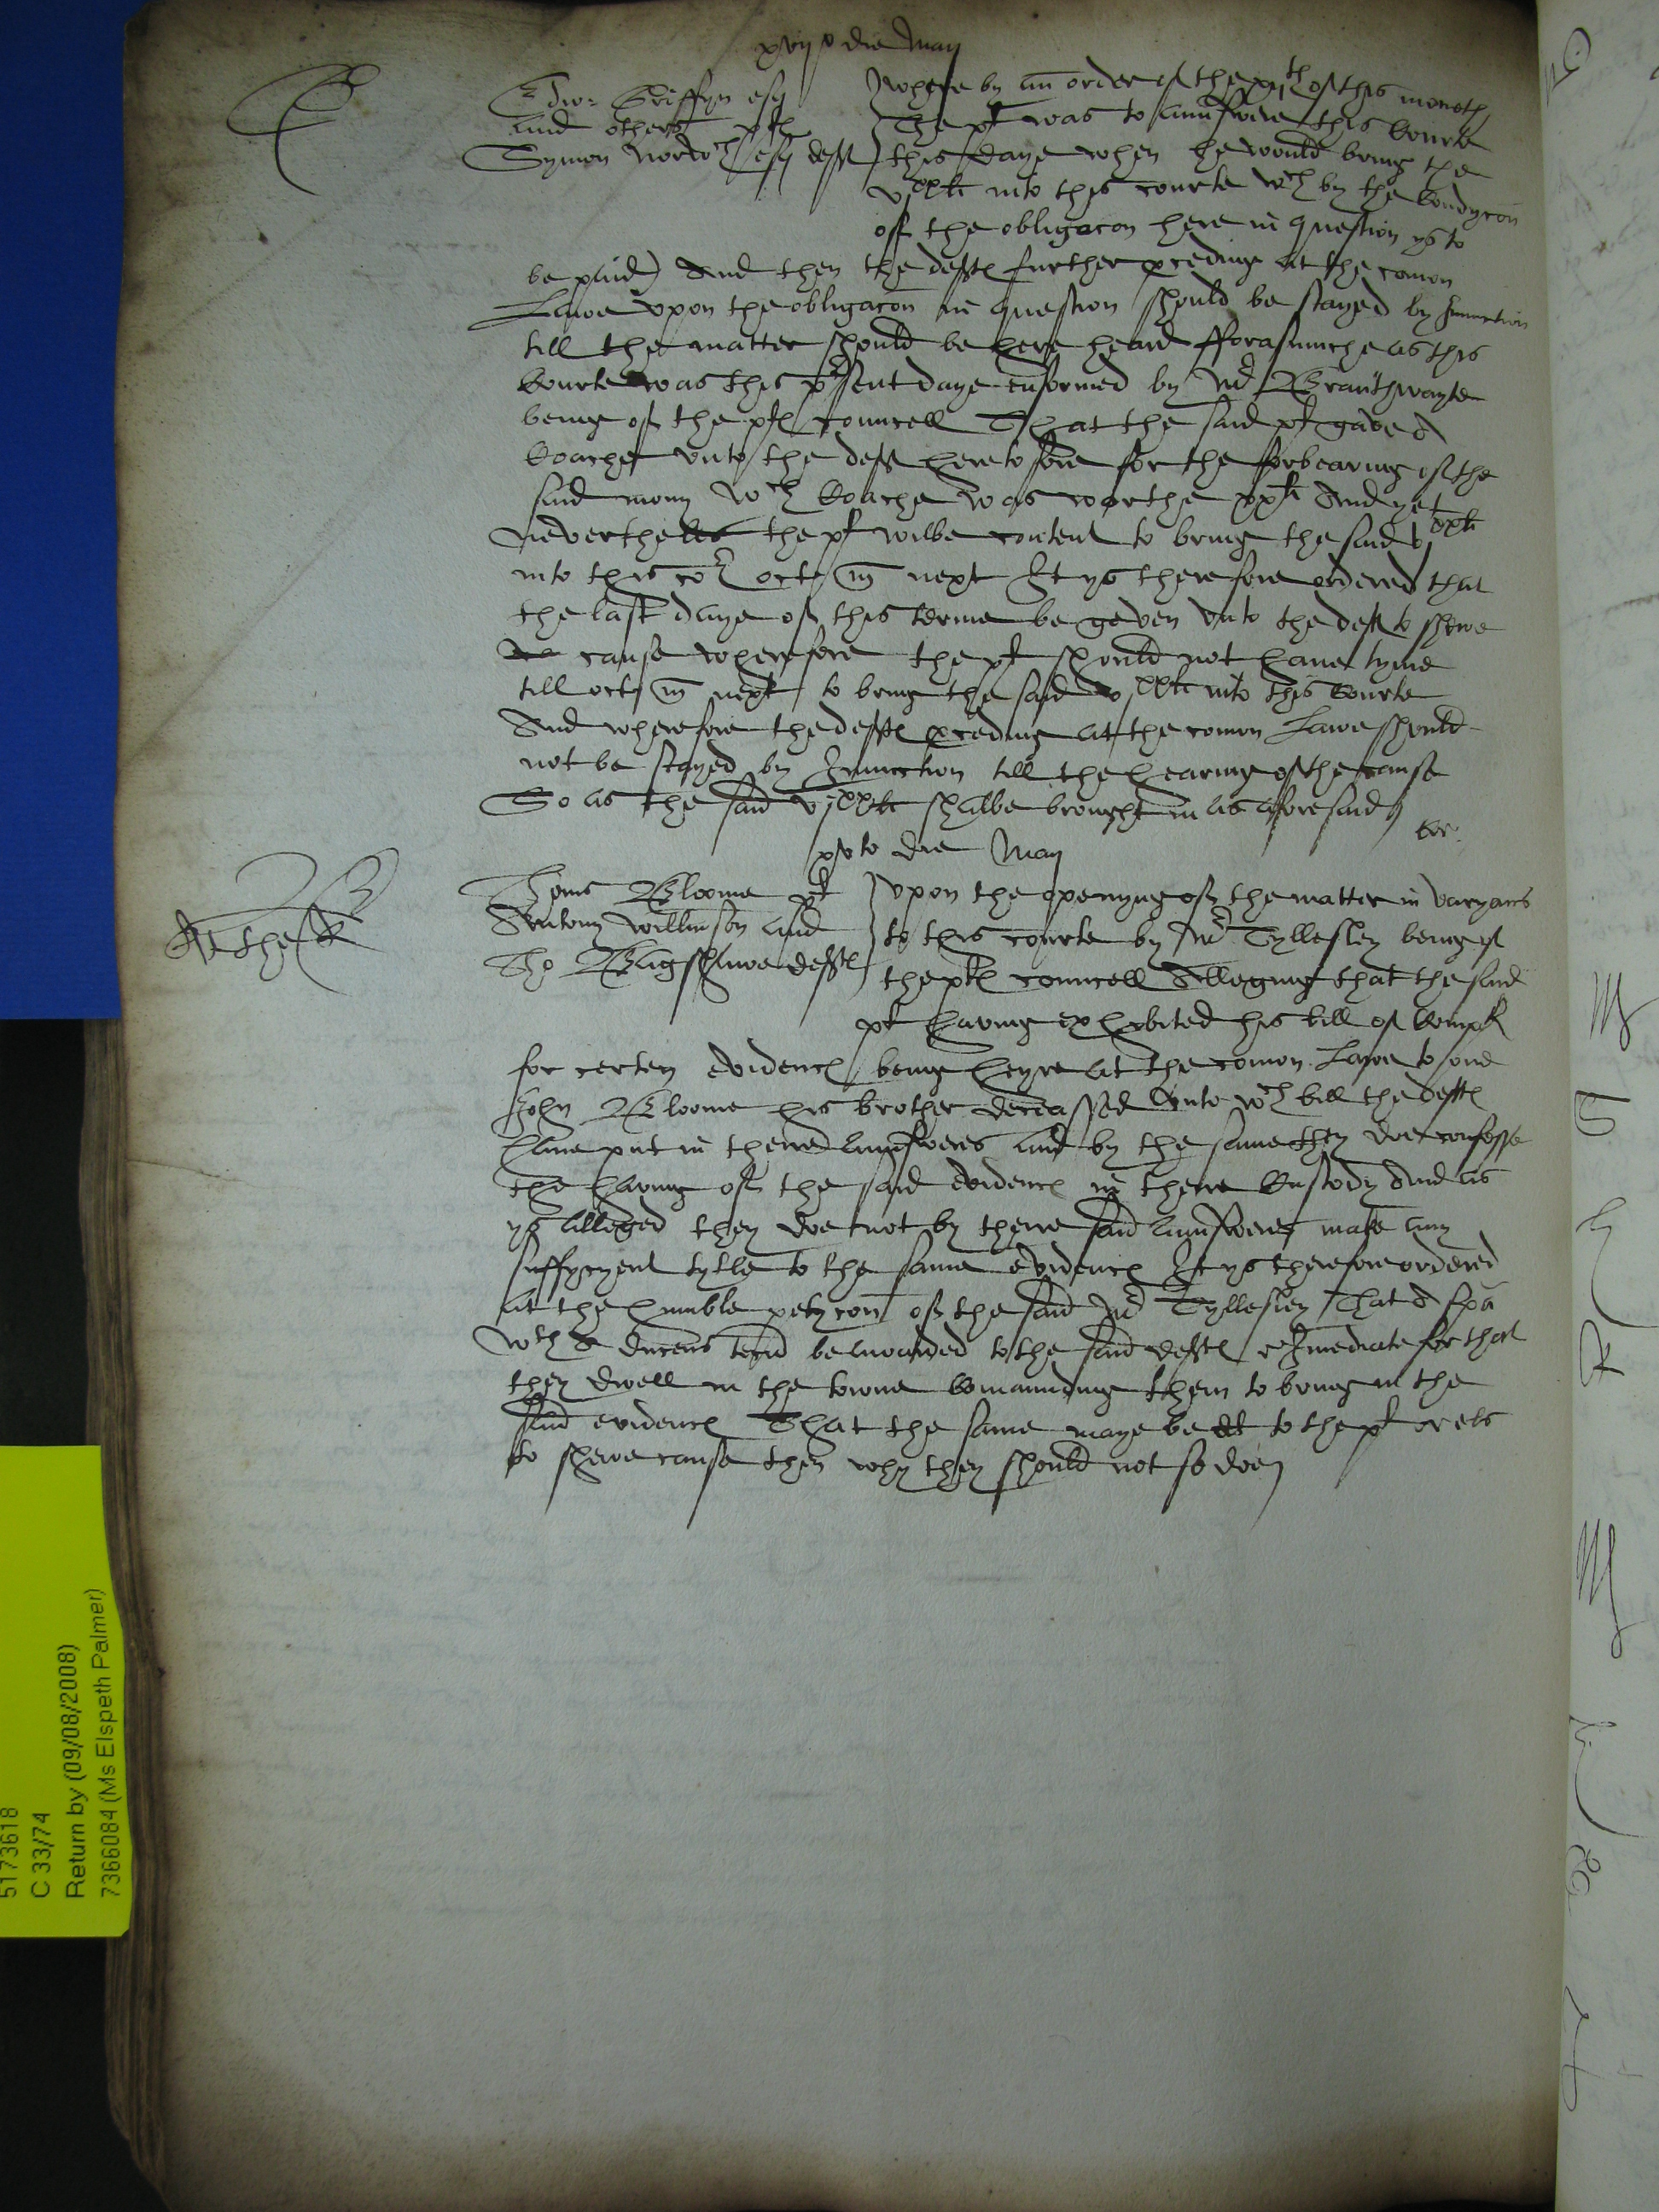 xvijo die Maij
Edw: Griffyn esq
and others plt
Symon Norwch esq deft
Where by an order of the xijth of this moneth
The plt was to aunswere this Courte
this daye when he would bring the
vjxxli into this courte wch by the Condycon
of the obligacon here in question ys to
be paid) And then the deftes further pceding at the comon
Lawe vpon the obligacon in question should be stayed by Iniunction
till the matter should be here heard fforasmuche as this
Courte was this psent daye enformed by Mr Braithwayte
being of the pltes councell That the said plt gave a
Coache vnto the deft heretofore for the forbearing of the
said mony wch Coache was worthe xxli And yet
neverthelesse the plt wilbe content to bring the said vjxxli
into this cort oct m next It ys therefore ordered that
the last daye of this terme be geven vnto the deft to shewe
cause wherefore the plt should not haue tyme
till oct m next to bring the said vjxxli into this Courte
And wherefore the deftes pceding at the comon Lawe should
not be stayed by Iniunction till the hearing of the cause
So as the said vjxxli shalbe brought in as aforesaid
xvto die Maij
B
Thoms Bloome plt
Antony Willinson and
Tho Bagshawe deftes
vpon the openyng of the matter in varyans
to this courte by Mr Tyllesley being of
the pltes councell Alleging that the said
plt having exhibited his bill of Complt
for certen evidences being heyre at the comon Lawe to one
John Bloome his brother deceassed Vnto wch bill the deftes
haue put in there aunsweres and by the same they doe confesse
the having of the said evidences in there Custody And as
ys alleged they doe not by there said aunsweres make any
suffycyent tytle to the same evidences It ys therefore ordered
at the humble petycon of the said Mr Tyllesley That a spa
wth A ducens tecu be awarded to the said deftes rImediate for that
they dwell in the towne Comaunding them to bring in the
said evidences That the same maye be dd to the plt or els
to shewe cause then why they should not so doe
5173618
C 33/74
Return by (09/08/2008)
7366084 (Ms Elspeth Palmer)